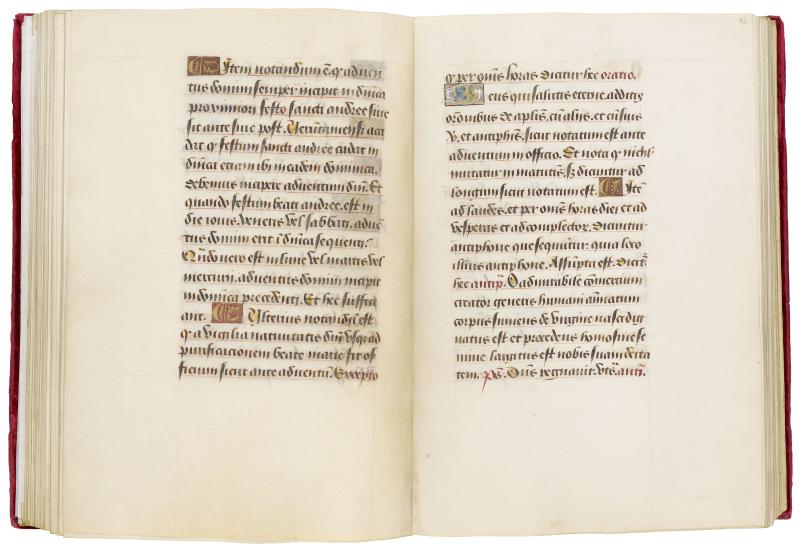 Item notandum ē. q̄ aduen
tus domini semper incipit in dn̄ica
proximiori festo sancti andree siue
sit ante siue post. Uerūtamen si acci
dat q̄ festum sancti andree cadat in
dn̄ica etiam ibi in eadem dominica.
debemus incipere aduentum dn̄i. Et
quando festum beati andree. est in
die iouis. veneris vel sabbati. aduē
tus domini erit ī dn̄ica sequenti.
Qn̄do vero est in lune vel martis vel
mercurii. aduentus domini incipit
in dn̄ica precedenti. Et hec suffici
ant. Ulterius notandū est
q̄ a vigilia natiuitatis dn̄i vsq̄ ad
purificacionem beate marie fit of
ficium sicut ante aduentū. Excepto
92
q̄ per om̄s horas dicitur hec oratio.
Deus qui salutis eterne. additis
orōnibus de aplīs. cū aliis. et cū suis
V. et antiphēn. sicut notatum est ante
aduentum in officio. Et nota q̄ nichil
mutatur in matutīs. sz dicuntur ad
longum sicut notatum est. Itē
ad laudes. et per om̄s horas diei et ad
vesperas et ad complector. dicuntur
antiphone que sequūtur. quia loco
illius antiphone. Assūpta est. dicit̄.
hec antip̄. O admirabile cōmercium
creator generis humani aīmatum
corpus sumens de virgine nasci dig
natus est et procedens homo sine se
mine largitus est nobis suam deita
tem. Ps. Dn̄s regnauit. vts. antī.